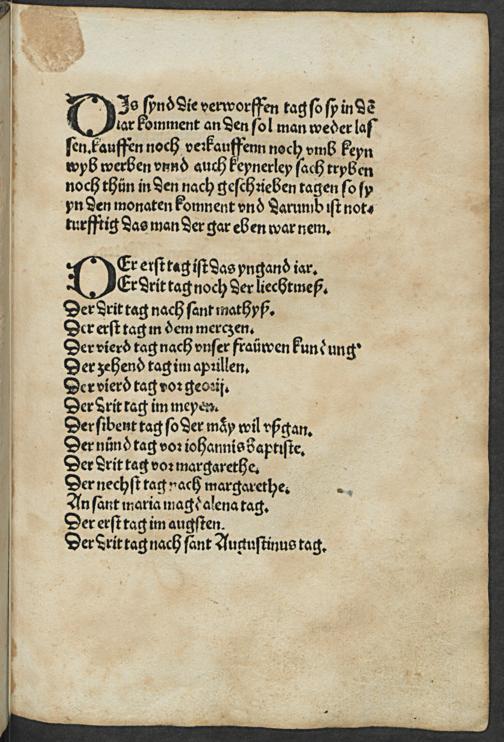 DJs synd die verworffen tag so sy in dē
iar komment an den sol man weder las
sen. kauffen noch verkauffenn noch vmb keyn
wyb werben vnnd auch keynerley sach tryben
noch thün in den nach geschrieben tagen so sy
yn den monaten komnent vnd darumb ist not⸗
turfftig das man der gar eben war nem.
DEr erst tag ist das yngand iar.
Er drit tag noch der liechtmeß.
Der drit tag nach sant mathyß.
Der erst tag in dem merczen.
Der vierd tag nach vnser fraüwen kundung
Der zehend tag im aprillen.
Der vierd tag vor georij.
Der drit tag im meyen.
Der sibent tag so der mäy wil vßgan.
Der nünd tag vor iohannis baptiste.
Der drit tag vor margarethe.
Der nechst tag nach margarethe.
An sant maria magdalena tag.
Der erst tag im augsten.
Der drit tag nach sant Augustinus tag.